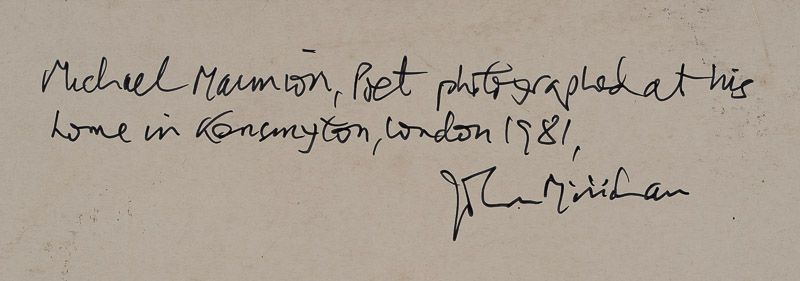 Michael Marmion, Poet photographed at his
home in Kensington, London 1981,
John Minihan